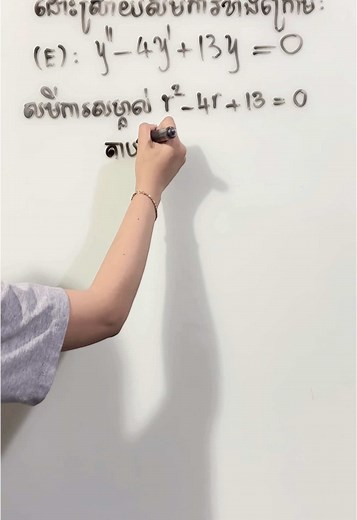 ដោះស្រាយសមីការខាងក្រោម:
(E): y'' - 4y' + 13y = 0
សមីការសម្គាល់ r² - 4r + 13 = 0
តាប